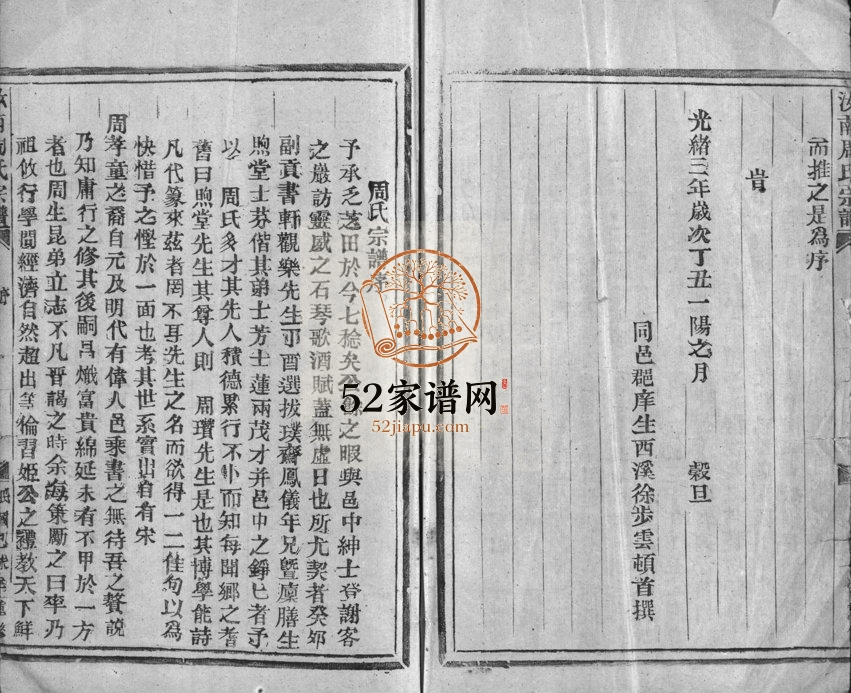 汝南周氏宗譜
而推之是為序
旹
光緒三年歲次丁丑一陽之月 穀旦
同邑郡庠生西溪徐步雲頓首撰
周氏宗譜序
予承乏芝田於今七稔矣公餘之暇與邑中紳士登謝客
之巖訪靈威之石琴歌酒賦蓋無虛日也所尤契者癸卯
副貢書軒觀樂先生丁酉選拔璞齋鳳儀年兄暨廩膳生
煦堂士芬偕其弟士芳士蓮兩茂才并邑中之錚匕者予
以 周氏多才其先人積德累行不卜而知每聞鄉之耆
舊曰煦堂先生其尊人則 周瓚先生是也其博學能詩
凡代篆來茲者罔不耳先生之名而欲得一二佳句以為
快惜予之慳於一面也考其世系實出自有宋
周孝童之裔自元及明代有偉人邑乘書之無待吾之贅說
乃知庸行之修其後嗣昌熾富貴綿延未有不甲於一方
者也周生昆弟立志不凡晋謁之時余每策勵之曰率乃
祖攸行學間經濟自然超出等倫習姬公之禮教天下鮮
汝南周氏宗譜
序
52家谱网
52jiapu.com